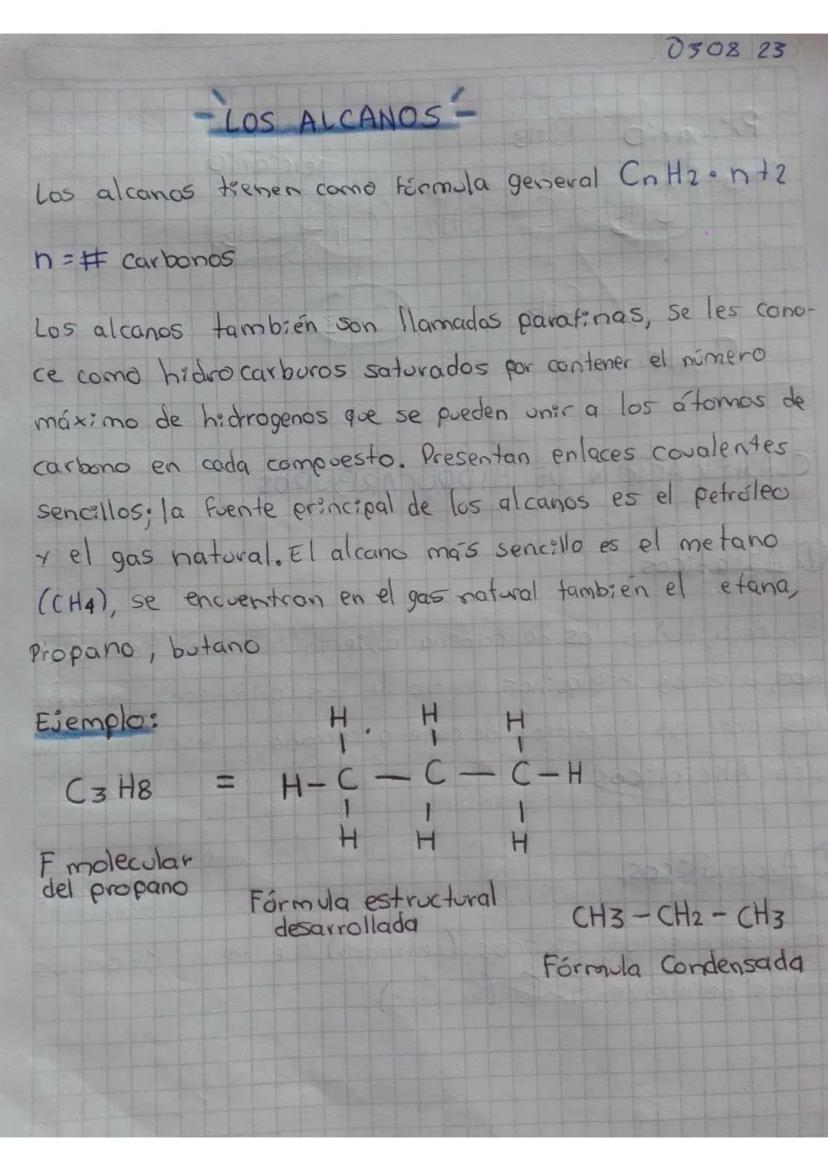 030823
-LOS ALCANOS-
Los alcanos tienen como fórmula general CnH2·n+2
n = # carbonos
Los alcanos también son llamados parafinas, se les cono-
ce como hidrocarburos saturados por contener el número
máximo de hidrogenos que se pueden unir a los átomos de
carbono en cada compuesto. Presentan enlaces covalentes
sencillos; la fuente principal de los alcanos es el petróleo
y el gas natural. El alcano más sencillo es el metano
(CH4), se encuentran en el gas natural también el etana,
Propano, butano
Ejemplo:
H H H
C3H8 = H-C-C-C-H
H H H
F molecular
del propano
Fórmula estructural
desarrollada
CH3-CH2-CH3
Fórmula Condensada